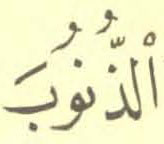 اْلذُّنُوْبَ